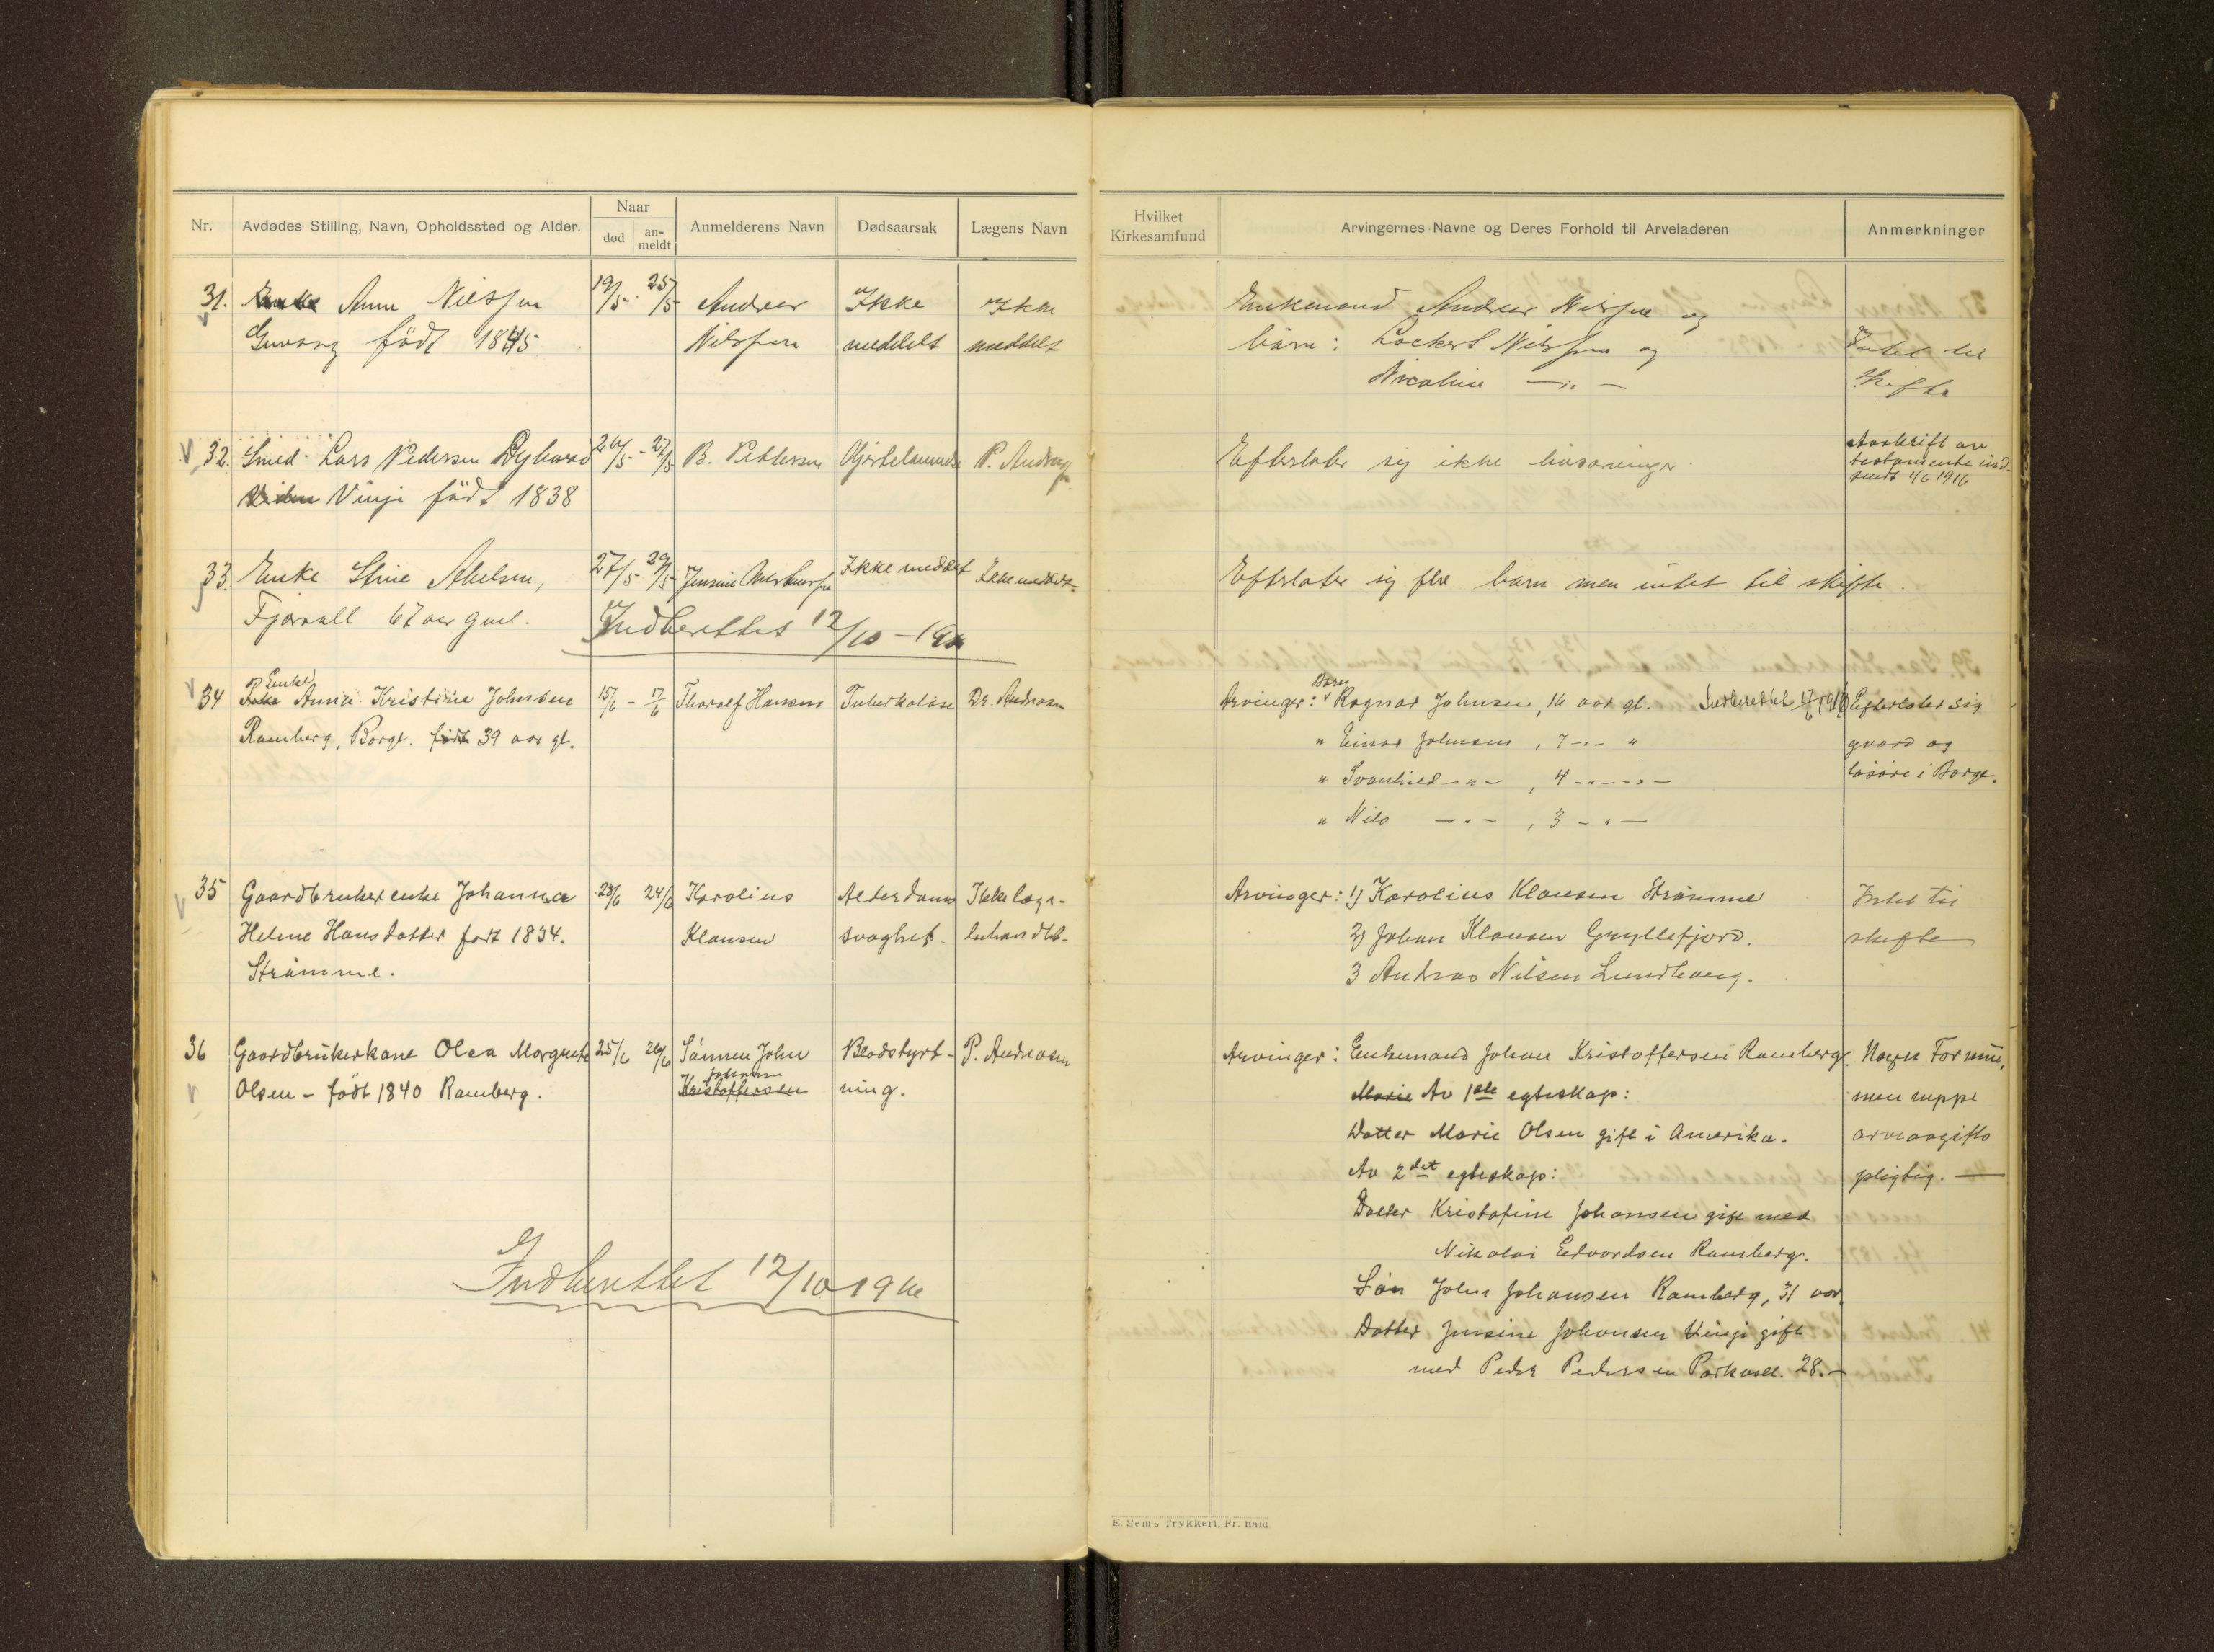 Nr. Avdødes Stilling, Navn, Opholdssted og Alder. Naar død an-meldt Anmelderens Navn Dødsaarsak Lægens Navn Hvilket Kirkesamfund Arvingernes Navne og Deres Forhold til Arveladeren Anmerkninger
31. Enke Anne Nilssen 19/5 25/5 Andreas Ikke Ikke Enkemand Andreas Nilssen og
født 1845 Nilssen meddelt meddelt barn: Lockert Nilssen og Intet til
Nicoline —"— skifte
32. Smed Lars Pedersen 26/5 - 27/5 B. Pettersen P. Andreas Efterlater sig ikke livsarvinger. Avskrift av
Vinje født 1838 testamente ind
sendt 1/6 1916
33. Enke Stine Abelsen, 27/5 29/5 Jensine Ikke meddelt Ikke meddelt Efterlater sig flre barn men intet til skifte.
67 aar gml. Indberettet 12/10 - 1916
34 Enke Anna Kristine Johnsen 15/6 - 17/6 Tharalf Hansens Tuberkuløse Dr. Andreasen Arvinger: Barn Ragnar Johnsen, 16 aar gl. Indberettet 17/6 1916 Efterlater sig
Ramberg, Borge. født 39 aar gl. " Einar Johnsen, 7 -"- " gaard og
" Svanhild -"-, 4 -"- løsøre i Borge.
" Nils -"-, 3 -"-
35 Gaardbrukerenke Johanna 23/6 24/6 Karolius Alderdoms Ikke læge- Arvinger: 1) Karolius Klausen Strømme Intet til
Helene Hansdatter født 1834. Klausen svaghet. behandlet. 2) Johan Klausen Gryllefjord. skifte
Strømme. 3 Andreas Nilsen Lundhaug.
36 Gaardbrukerkone Olea Margrete 25/6 26/6 Sønnen John Blodstyrt- P. Andreasen Arvinger: Enkemand Johan Kristoffersen Ramberg. Nogen Formue,
Olsen - født 1840 Ramberg. Johansen Kristoffersen ning. Marie Av 1ste egteskap: men neppe
Datter Marie Olsen gift i Amerika. arveavgifts
Av 2det egteskap: pligtig. —
Datter Kristofine Johansen gift med
Nikolai Edvardsen Ramberg.
Indberettet 12/10 1916
Søn John Johansen Ramberg, 31 aar.
Datter Jensine Johansen Vinje gift
med Peder Pedersen 28.-
E. Sems Trykkeri, Fr.hald.